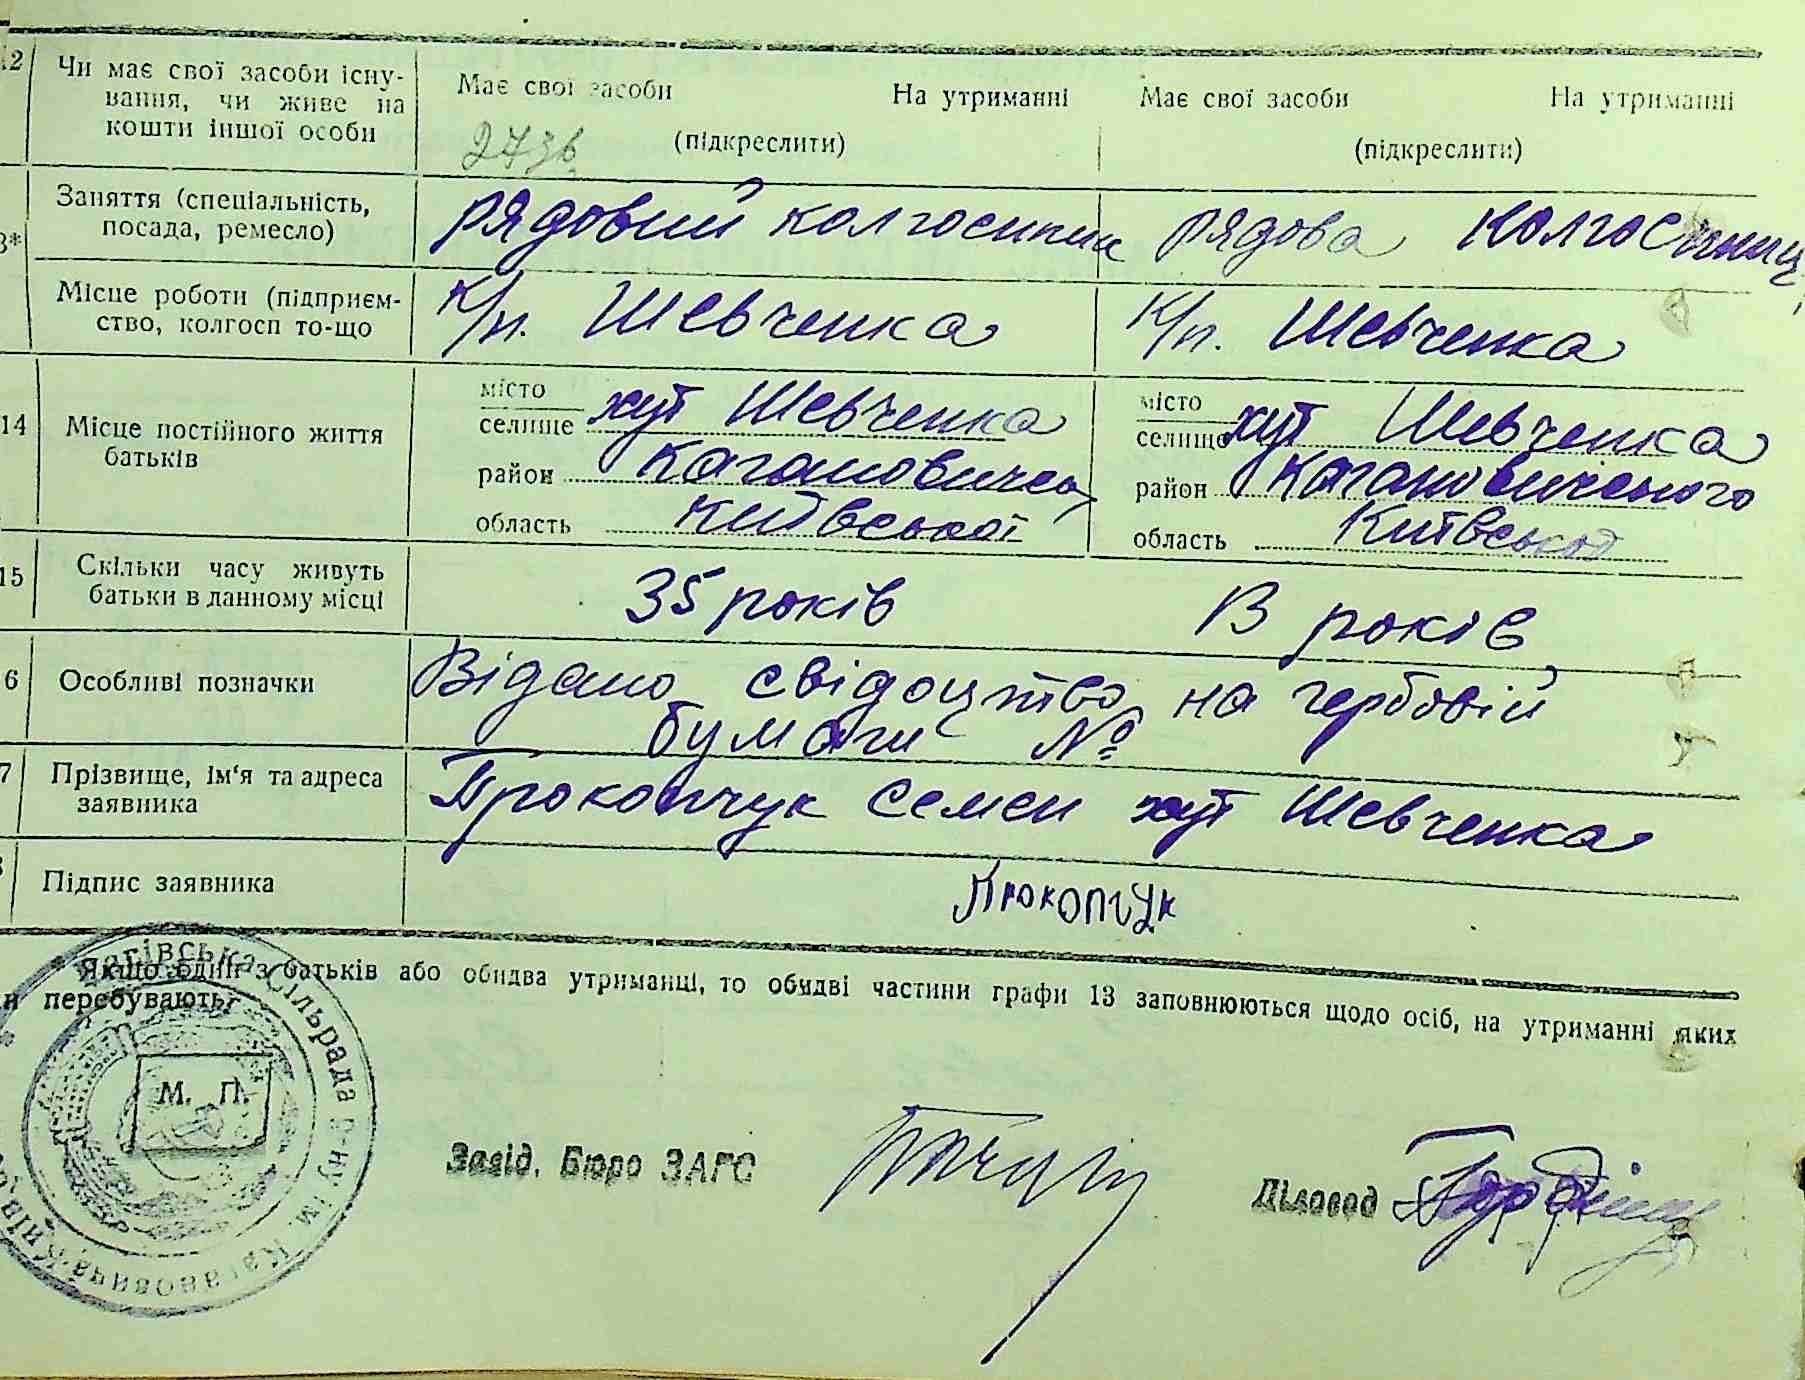 12 Чи має свої засоби існу- Має свої засоби На утриманні Має свої засоби На утриманні
вання, чи живе на
кошти іншої особи (підкреслити) (підкреслити)
273
Заняття (спеціальність, рядовий колгоспник рядова колгоспниц
посада, ремесло)
3*
Місце роботи (підприєм- К/п. Шевченка К/п. Шевченка
ство, колгосп то-що
14 Місце постійного життя батьків
місто місто
селище хут Шевченка селище хут Шевченка
район Кагановическ район Кагановичського
область Київської область Київської
15 Скільки часу живуть 35 років 13 років
батьки в данному місці
6 Особливі позначки Відано свідоцтво на гербовій
бумаги №
7 Прізвище, ім'я та адреса Прокопчук Семен хут Шевченка
заявника
Підпис заявника Прокопчук
Якщо один з батьків або обидва утриманці, то обидві частини графи 13 заповнюються щодо осіб, на утриманні яких
и перебувають.
М. П.
Сільрада р-ну ім. Кагановича Київ
Завід. Бюро ЗАГС Діловод